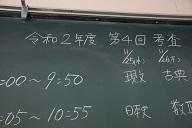 令和2年度 第4回 考査
11/25(水) 11/26(木)
:00〜9:50 現文 古典
:05〜10:55 日探 数Ⅲ